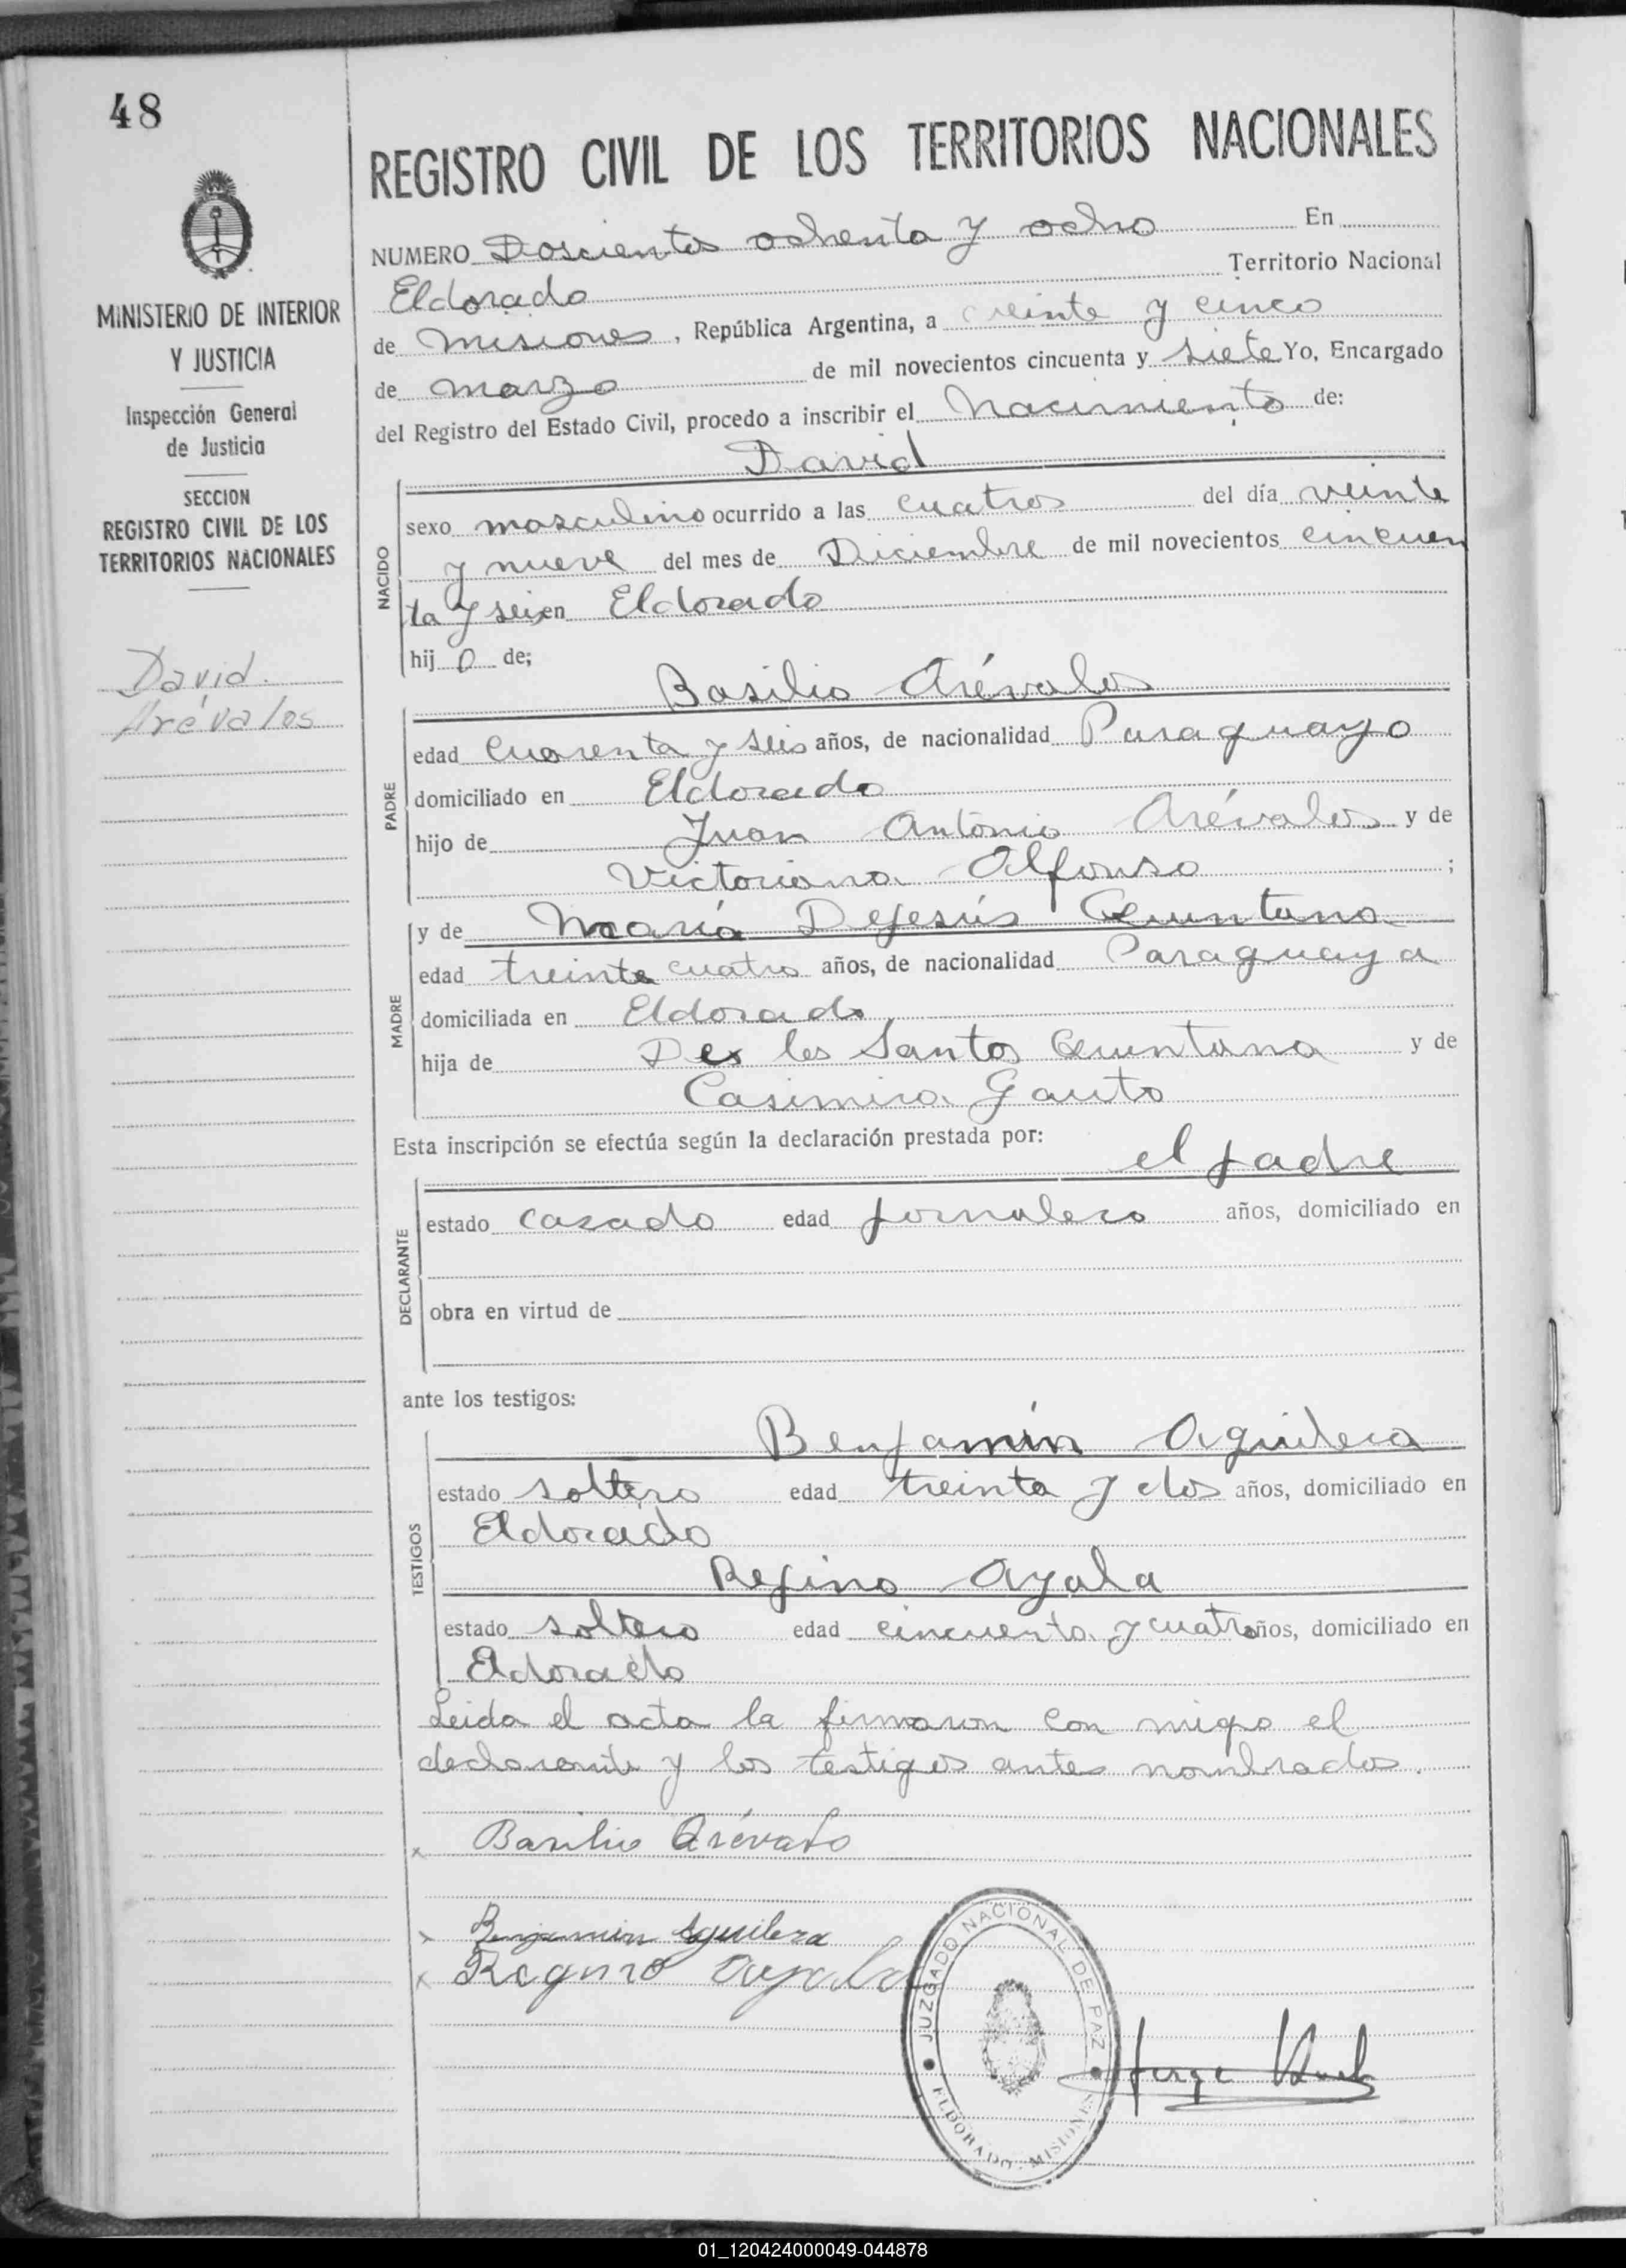 48
REGISTRO CIVIL DE LOS TERRITORIOS NACIONALES
MINISTERIO DE INTERIOR
Y JUSTICIA
Inspección General
de Justicia
SECCION
REGISTRO CIVIL DE LOS
TERRITORIOS NACIONALES
David.
Arévalos
NUMERO Doscientos ochenta y ocho En
Eldorado Territorio Nacional
de Misiones, República Argentina, a veinte y cinco
de marzo de mil novecientos cincuenta y siete Yo, Encargado
del Registro del Estado Civil, procedo a inscribir el Nacimiento de:
David
NACIDO
sexo masculino ocurrido a las cuatros del día veinte
y nueve del mes de Diciembre de mil novecientos cincuen
ta y seis en Eldorado
hij o de;
Basilio Arévalos
PADRE
edad cuarenta y seis años, de nacionalidad Paraguayo
domiciliado en Eldorado
hijo de Juan Antonio Arévalos y de
Victoriana Alfonso ;
MADRE
y de María Dejesús Quintana
edad treinta cuatro años, de nacionalidad Paraguaya
domiciliada en Eldorado
hija de De los Santos Quintana y de
Casimira Gauto
Esta inscripción se efectúa según la declaración prestada por:
el padre
DECLARANTE
estado cazado edad jornalero años, domiciliado en
obra en virtud de
ante los testigos:
TESTIGOS
Benjamín Aguilera
estado soltero edad treinta y dos años, domiciliado en
Eldorado
Rejino Ayala
estado soltero edad cincuenta y cuatro años, domiciliado en
Eldorado
Leida el acta la firmaron con migo el
declarante y los testigos antes nombrados.
x Basilio Arévalo
x Benjamin Aguilera
x Regino Ayala
JUZGADO NACIONAL DE PAZ
ELDORADO - MISIONES
Jorge
01_120424000049-044878